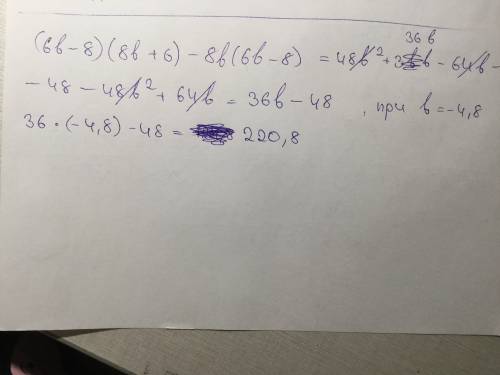 36b
(6b-8)(8b+6)-8b(6b-8) = 48b²+36b-64b-
-48-48b²+64b=36b-48, при b=-4,8
36·(-4,8)-48= 220,8